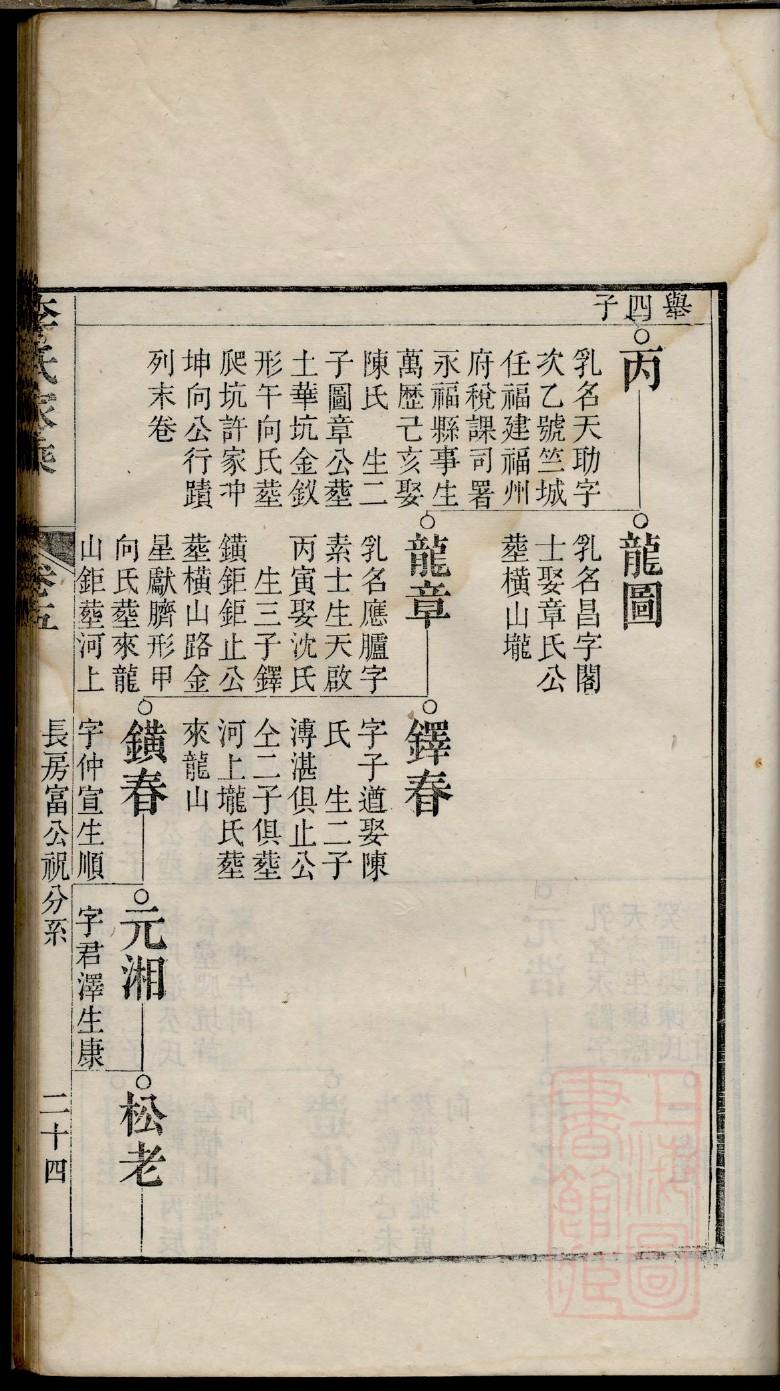 舉四子
丙
乳名天助字
次乙號竺城
任福建福州
府稅課司署
永福縣事生
萬歷己亥娶
陳氏　生二
子圖章公塟
土華坑金釵
形午向氏塟
爬坑許家冲
坤向公行蹟
列末卷
龍圖
乳名昌字閣
士娶章氏公
塟橫山壠
龍章
乳名應臚字
素士生天啟
丙寅娶沈氏
　生三子鐸
鐄鉅鉅止公
塟橫山路金
星獻臍形甲
向氏塟來龍
山鉅塟河上
鐸春
字子遒娶陳
氏　生二子
溥湛俱止公
仝二子俱塟
河上壠氏塟
來龍山
鐄春
字仲宣生順
元湘
字君澤生康
松老
長房富公祝分系
二十四
李氏家乘
卷五
上海圖書館藏